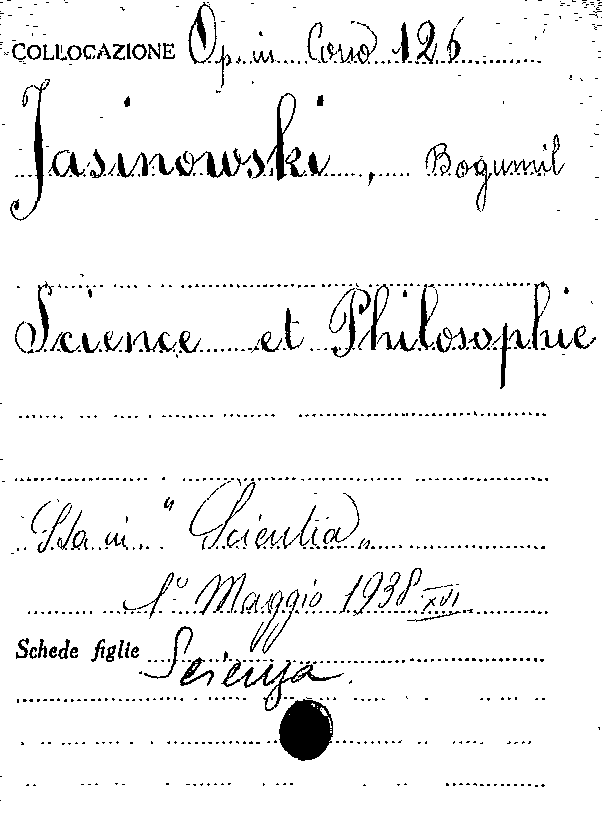 COLLOCAZIONE Op. in Corso 126
Jasinowski, Bogumil
Science et Philosophie
Sta in "Scientia„
1º Maggio 1938 XVI
Schede figlie Scienza.